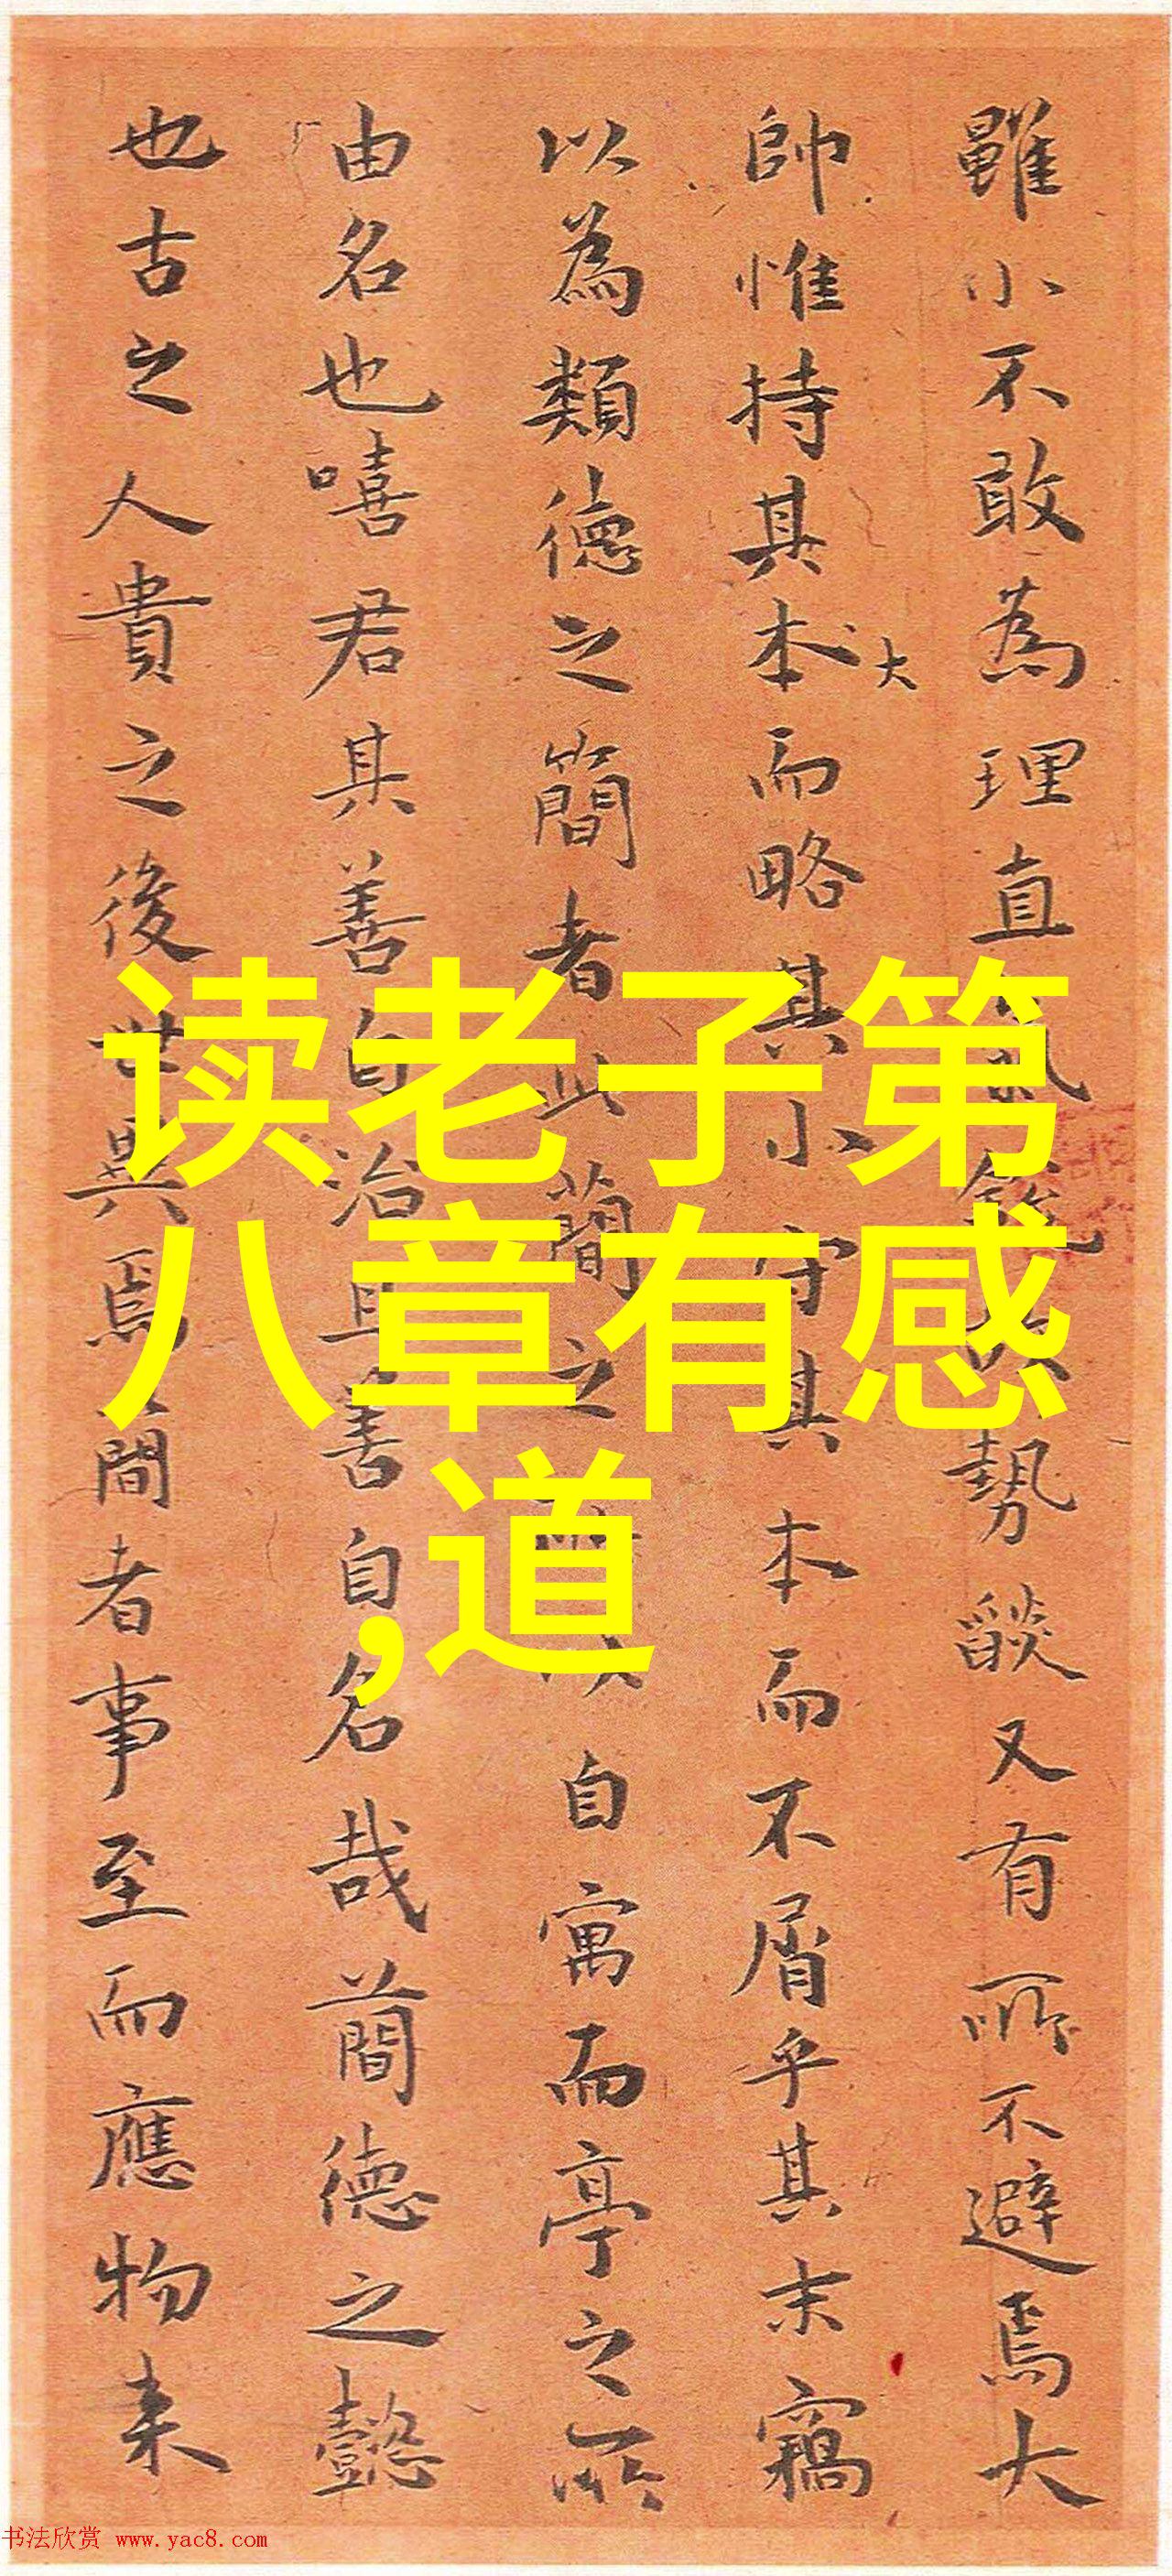 雖小不敢為理直氣
勢燄又有所不避焉大
帥惟持其本而略其小守其本而不屑乎其末竊
大
以為類德之簡者此簡之
自寓而亭之所
由名也嘻君其善自治且善自名哉簡德之懿
也古之人貴之後世異焉簡者事至而應物来
读老子第
八章有感
,道
书法欣赏 www.yac8.com